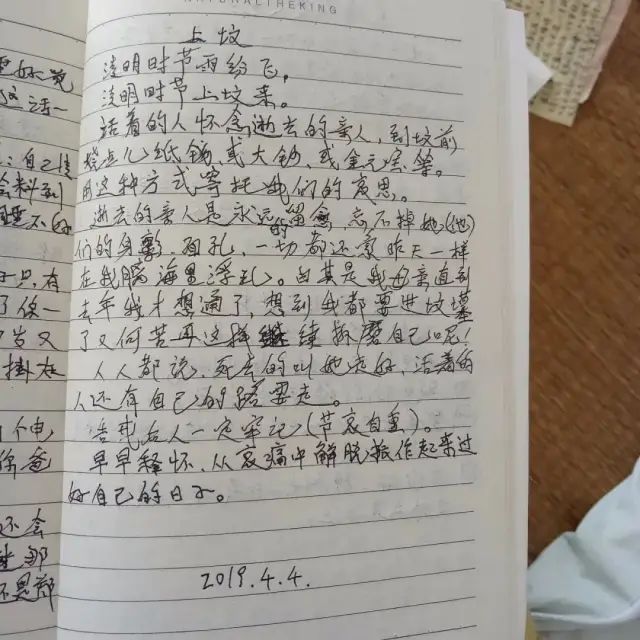 NATURALTREKING
上坟
清明时节雨纷飞。
清明时节上坟来。
活着的人怀念逝去的亲人,到坟前
烧点儿纸钱,或大钞,或金元宝等。
用这种方式寄托我们的哀思。
逝去的亲人是永远的留念,忘不掉她(他)
们的身影、面孔,一切都还象昨天一样
在我脑海里浮现。尤其是我母亲直到
去年我才想通了,想到我都要进坟墓
了又何苦再这样继续折磨自己呢!
人人都说,死去的叫她走好,活着的
人还有自己的路要走。
告戒后人一定牢记(节哀自重)。
早早释怀、从哀痛中解脱振作起来过
好自己的日子。
2019.4.4.